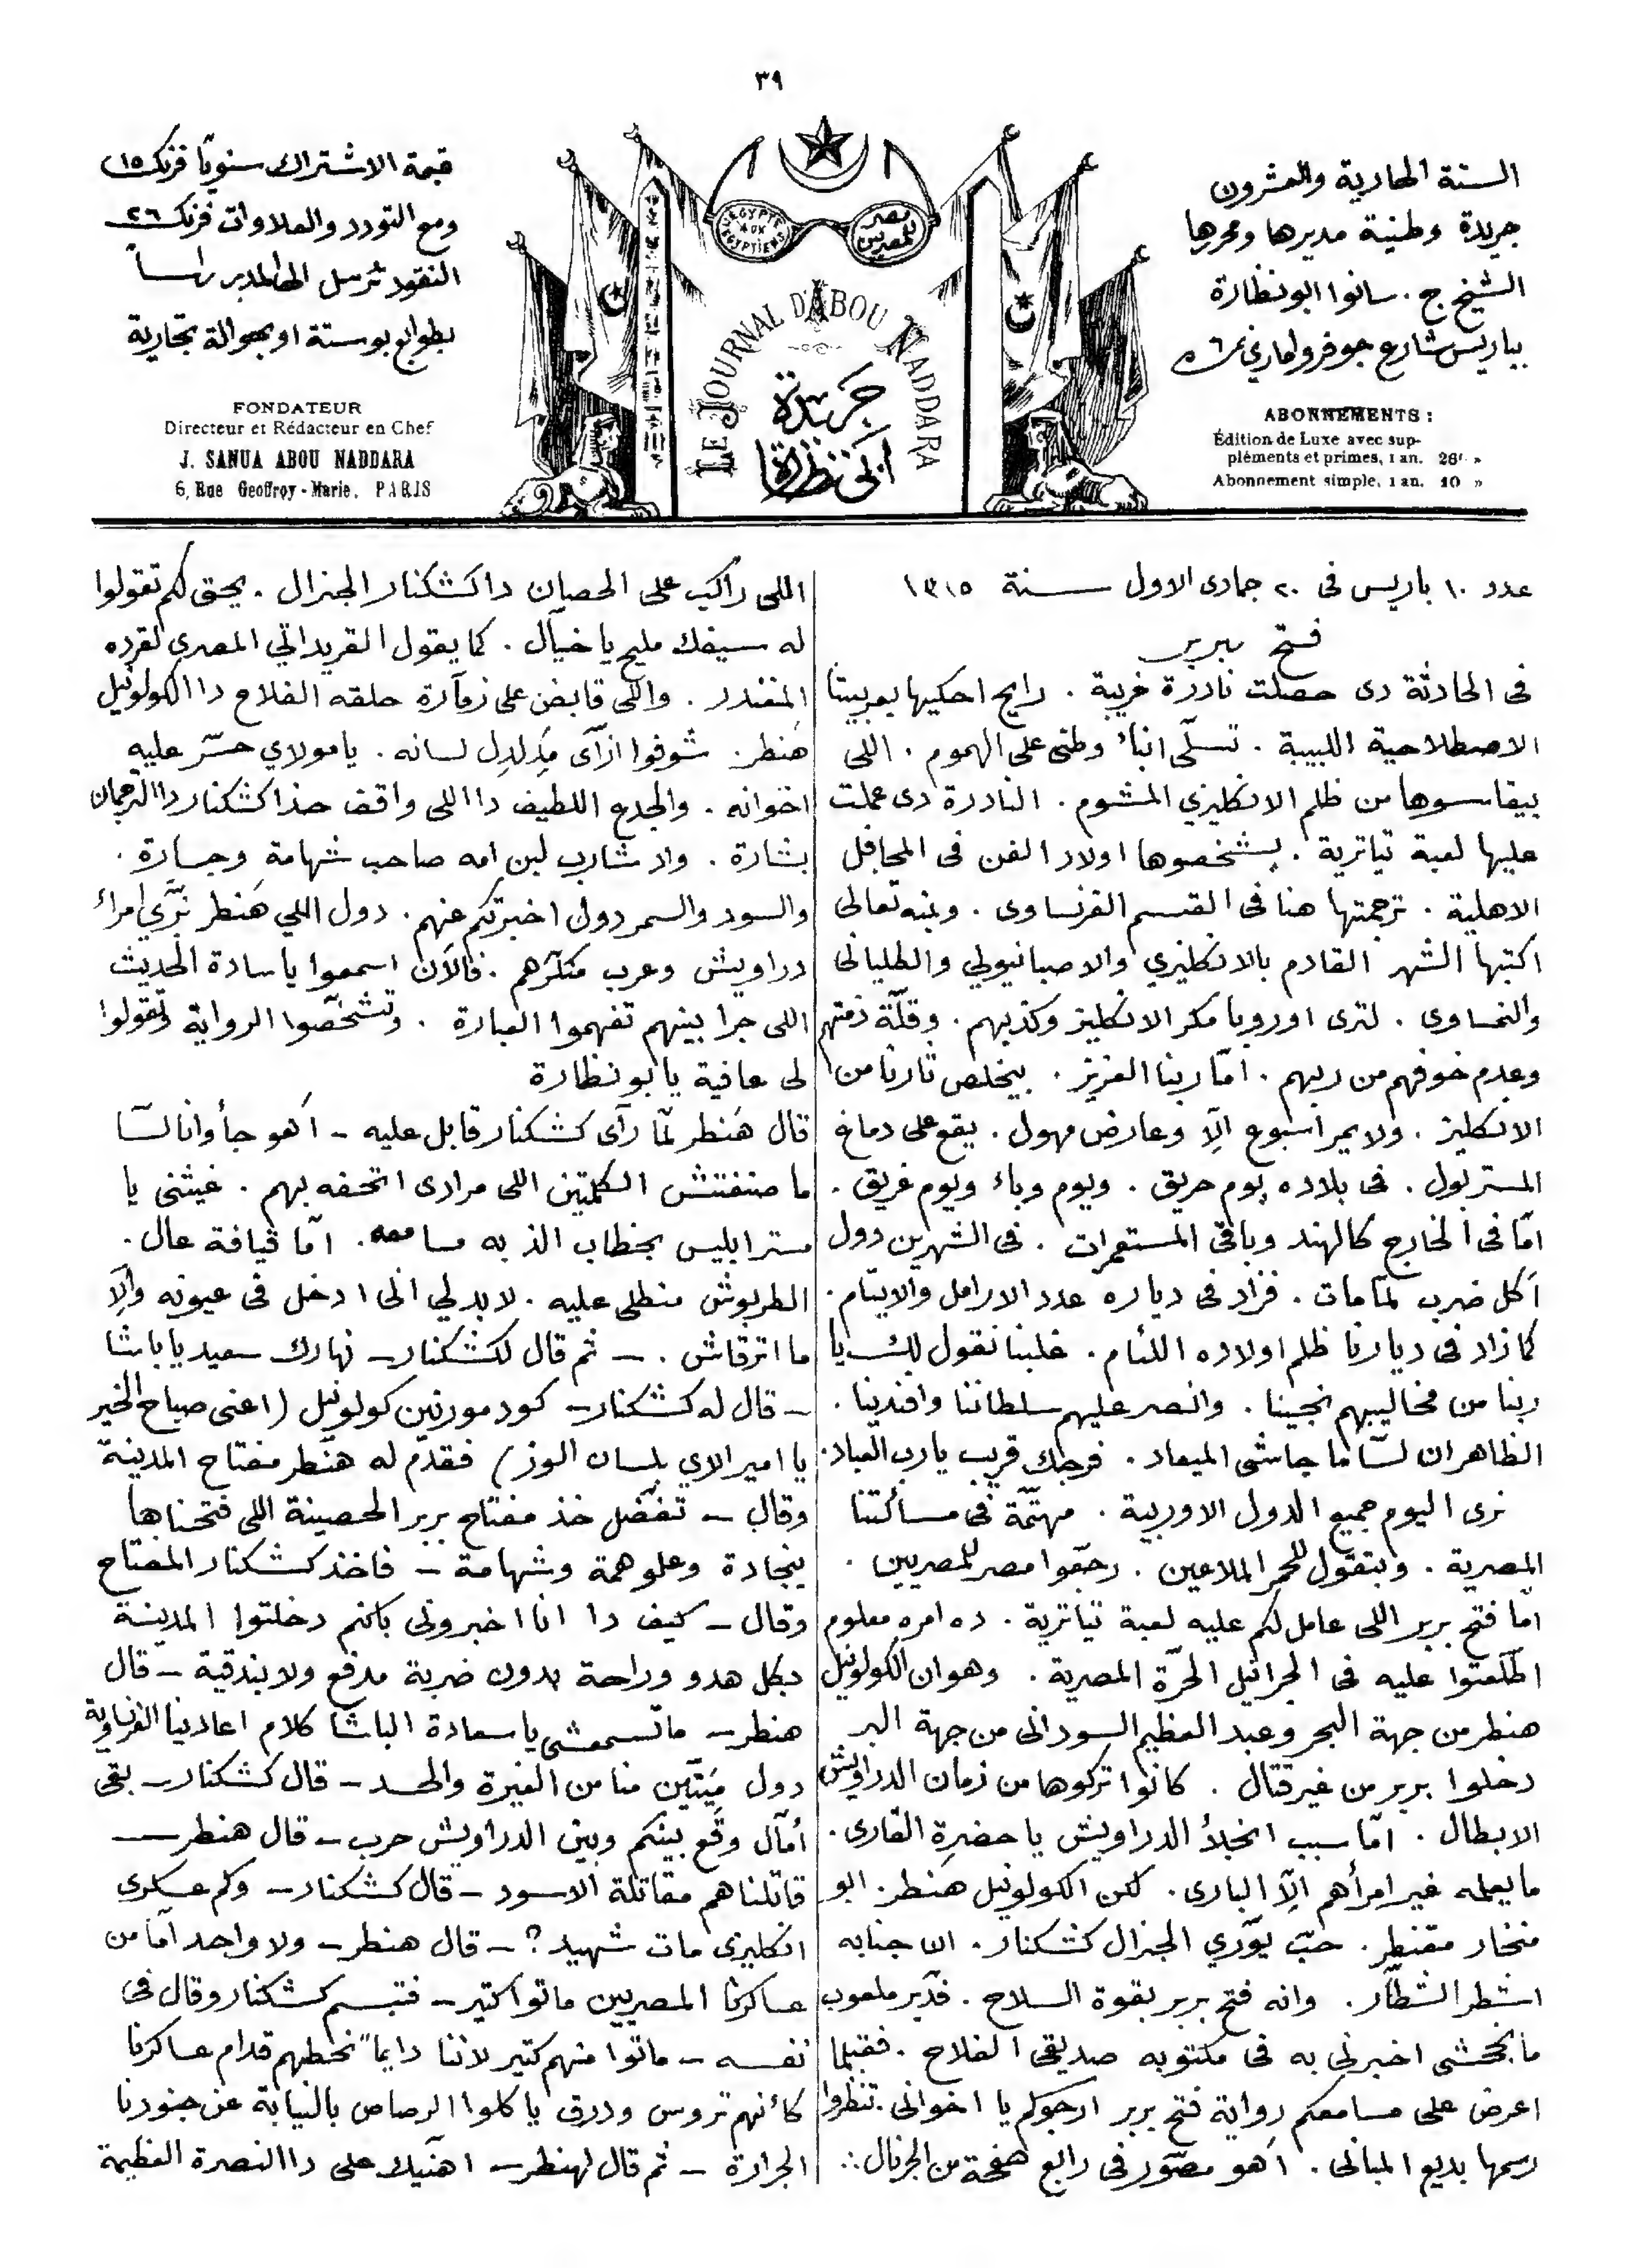 ٣٩
السنة الحادية والعشرون
جريدة وطنية مديرها ومحررها
الشيخ ج. سانوا ابو نظارة
بباريس شارع جوفروا ماري نمرة ٦
ABONNEMENTS :
Édition de Luxe avec sup-
pléments et primes, 1 an. 26f »
Abonnement simple, 1 an. 10 »
L'EGYPTE AUX EGYPTIENS
مصر للمصريين
LE JOURNAL D'ABOU NADDARA
جريدة
ابي نظارة
قيمة الاشتراك سنويًا فرنك ١٥
ومع التورد والعلاوات فرنك ٢٦
النقود ترسل الى المدير راساً
بطوابع بوستة او بحوالة تجارية
FONDATEUR
Directeur et Rédacteur en Chef
J. SANUA ABOU NADDARA
6, Rue Geoffroy-Marie, PARIS
عدد ١٠ باريس فى ٢٠ جمادى الاول سنة ١٣١٥
فتح بربر
فى الحادثة دى حصلت نادرة غريبة . رايح احكيها بعربيتنا
الاصطلاحية اللبيبة . تسلّى ابناء وطنى على الهموم . اللى
بيقاسوها من ظلم الانكليزي المشوم . النادرة دى عملت
عليها لعبة تياترية . يشخصوها اولاد الفن فى المحافل
الاهلية . ترجمتها هنا فى القسم الفرنساوى . وبمنه تعالى
اكتبها الشهر القادم بالانكليزي والاصبانيولي والطليانى
والنمساوى . لترى اوروبا مكر الانكليز وكذبهم . وقلّة ذمتهم
وعدم خوفهم من ربهم . امّا ربنا العزيز . بيخلص تارنا من
الانكليز . ولا يمر اسبوع الّا وعارض مهول . يقع على دماغ
المستر بول . فى بلاده يوم حريق . ويوم وباء ويوم غريق .
امّا فى الخارج كالهند وباقى المستعمرات . فى الشهرين دول
اكل ضرب لمّا مات . فزاد فى دياره عدد الارامل والايتام .
كما زاد فى ديارنا ظلم اولاده اللئام . خلينا نقول لك يا
ربنا من مخاليبهم نجينا . وانصر عليهم سلطاننا وافندينا .
الظاهر ان لسّا ما جاشى الميعاد . فرجك قريب يا رب العباد .
نرى اليوم جميع الدول الاوربية . مهتمّة فى مسألتنا
المصرية . وبتقول للحمر الملاعين . رجّعوا مصر للمصريين .
امّا فتح بربر اللى عامل لكم عليه لعبة تياترية . ده امره معلوم
اطّلعتوا عليه فى الجرائيل الحرّة المصرية . وهو ان الكولونيل
هنطر من جهة البحر وعبد العظيم السودانى من جهة البر
دخلوا بربر من غير قتال . كانوا تركوها من زمان الدراويش
الابطال . امّا سبب انخلاء الدراويش يا حضرة القارى .
ما يعلمه غير امرأهم الّا البارى . لكن الكولونيل هنطر . ابو
منخار مقنطر . حبّ يورّي الجنرال كتشكنار . ان جنابه
اشطر الشطّار . وانه فتح بربر بقوة السلاح . فدبّر ملعوب
ما يخشى اخبرنى به فى مكتوبه صديقى الفلاح . فقبلما
اعرض على مسامعكم رواية فتح بربر ارجوكم يا اخوانى . تنظروا
رسمها بديع المبانى . اهو مصّور فى رابع صفحة من الجرنال ∴
اللى راكب على الحصان دا كشكنار الجنرال . يحق لكم تقولوا
له سيفك مليح يا خيّال . كما يقول القريداتي المصري لقرده
المغندر . واللى قابض على زمّارة حلقه الفلاح دا الكولونيل
هنطر . شوفوا ازّاى مدلدل لسانه . يا مولاي حسّر عليه
اخوانه . والجدع اللطيف دا اللى واقف حذا كشكنار دا الترجمان
بشارة . ولد شارب لبن امه صاحب شهامة وجسارة .
والسود والسمر دول اخبرتكم عنهم . دول اللي هنطر بزّي امراء
دراويش وعرب منكّرهم . فالآن اسمعوا يا سادة الحديث
اللى جرا بينهم تفهموا العبارة . وتشخّصوا الرواية وتقولوا
لى عافية يا ابو نظارة
قال هنطر لمّا رآى كشكنار قابل عليه – اهو جأ وانا لسّا
ما ‎ الكلمتين اللى مرادى اتحفه بهم . غيثنى يا
مستر ابليس بخطاب الذ به مسامعه . امّا قيافة عال .
الطربوش منطلى عليه . لا بد لي انى ادخل فى عيونه والّا
ما اترقاش . – ثم قال لكشكنار – نهارك سعيد يا باشا
– قال له كشكنار – كود مورنين كولونيل (اعنى صباح الخير
يا امير الاي بلسان الوز) فقدّم له هنطر مفتاح المدينة
وقال – تفضّل خذ مفتاح بربر الحصينة اللى فتحناها
بنجادة وعلو همة وشهامة – فاخذ كشكنار المفتاح
وقال – كيف دا انا اخبرونى بانكم دخلتوا المدينة
بكل هدو وراحة بدون ضربة مدفع ولا بندقية – قال
هنطر – ما تسمعشى يا سعادة الباشا كلام اعادينا الفرنساوية
دول ميّتين منا من الغيرة والحسد – قال كشكنار – بقى
أمّال وقع بينكم وبين الدراويش حرب – قال هنطر –
قاتلناهم مقاتلة الاسود – قال كشكنار – وكم عسكرى
انكليزى مات شهيد ؟ – قال هنطر – ولا واحد امّا من
عساكرنا المصريين ماتوا كتير – فتبسم كشكنار وقال فى
نفسه – ماتوا منهم كتير لاننا دايمًا نحطهم قدام عساكرنا
كأنهم تروس ودرق ياكلوا الرصاص بالنيابة عن جنودنا
الجرارة – ثم قال لهنطر – اهنّيك على دا النصرة العظيمة